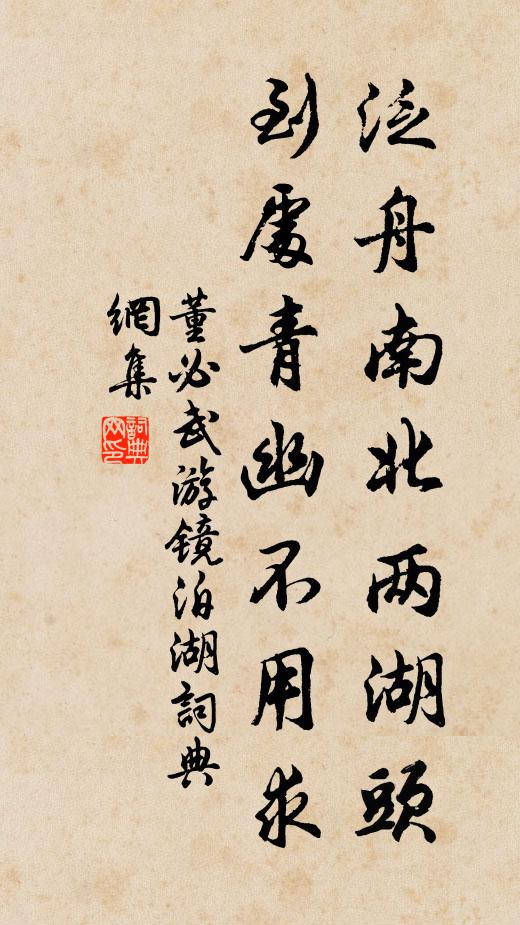 泛舟南北两湖頭
到處青幽不用求
董必武游鏡泊湖詞典
網集
詞典
网印